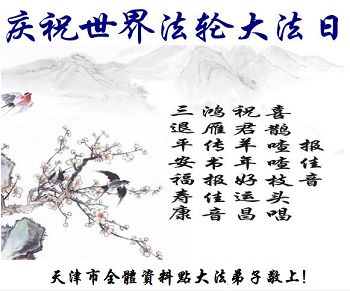 庆祝世界法轮大法日
三退平安福寿康
鸿雁传书报佳音
祝君羊年好运昌
喜鹊喳喳枝头唱
报佳音
天津市全體資料點大法弟子敬上!